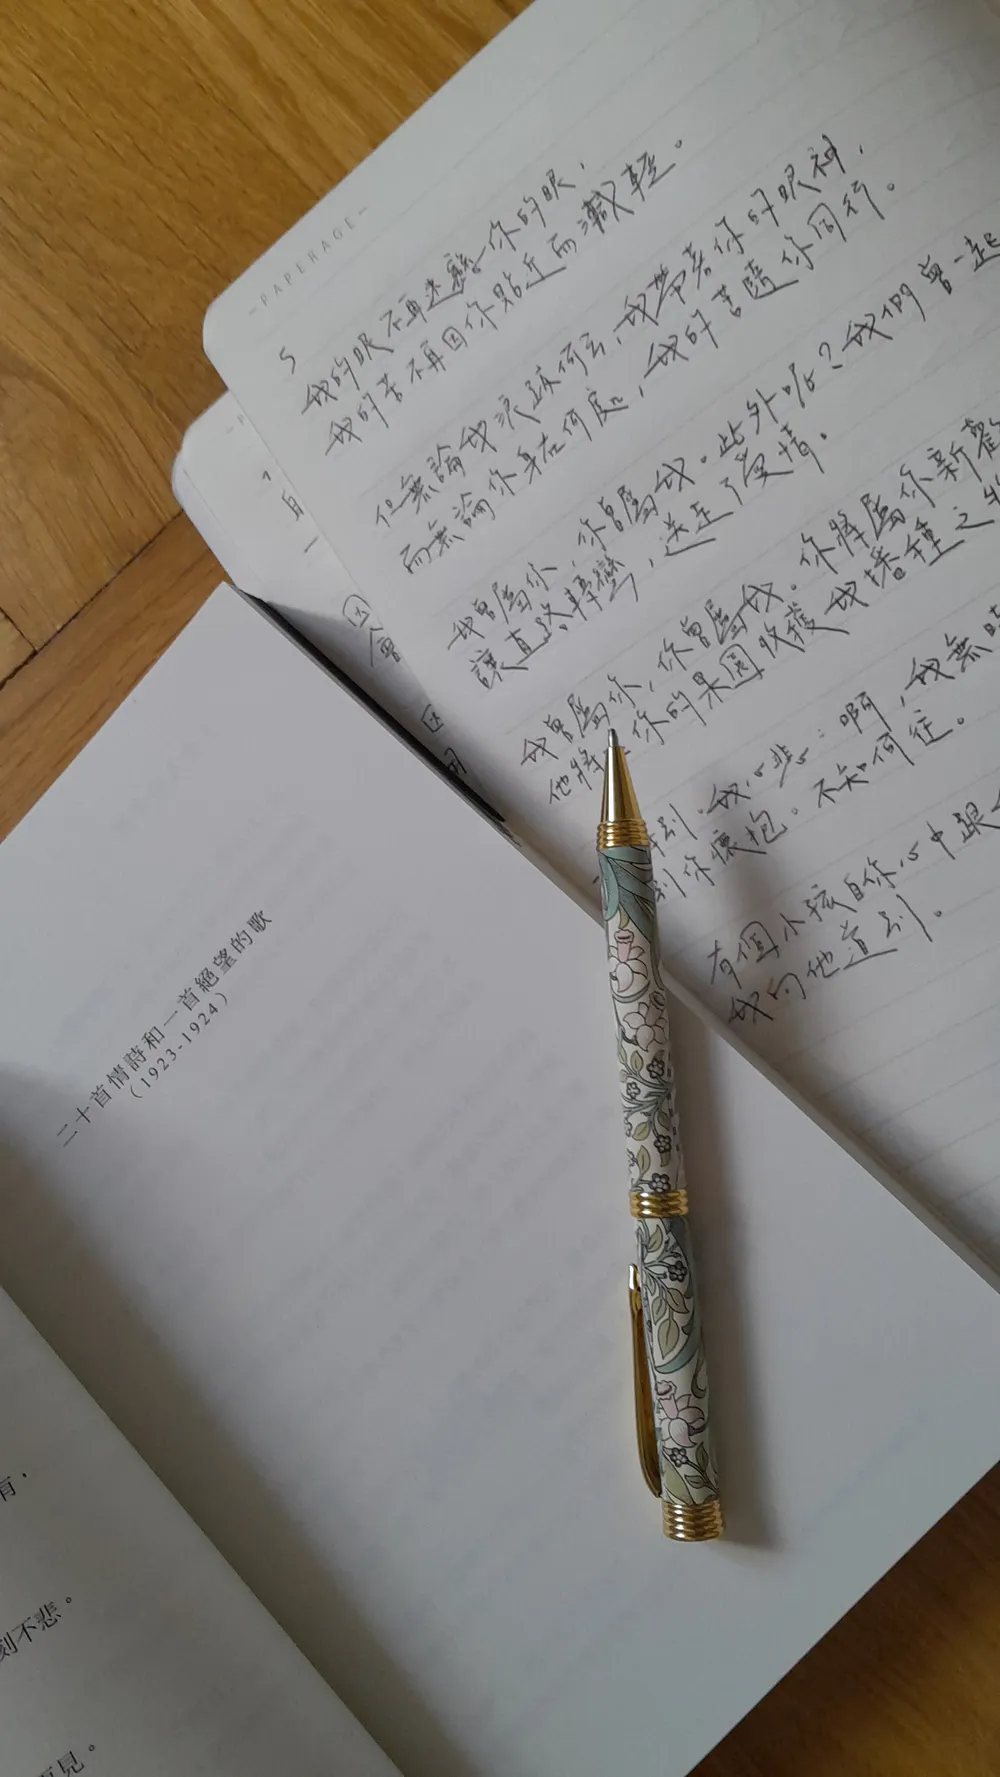 -PAPERAGE-
5
我的眼不再迷戀你的眼，
我的苦不再因你貼近而減輕。
但無論我浪跡何去，我帶著你的眼神，
而無論你身在何處，我的苦隨你同行。
我曾屬你，你曾屬我。此外呢？我們曾一起
讓直路轉彎，送走了愛情。
我曾屬你，你曾屬我。你將屬你新歡
他將 你的果園收穫我播種之
別.我心悲：啊，我無
到你懷抱。不知何往。
有個小孩自你心中跟
我向他道別。
1
自
一
因
會
因
二十首情詩和一首絕望的歌
(1923-1924)
有，
刻不悲。
再見。